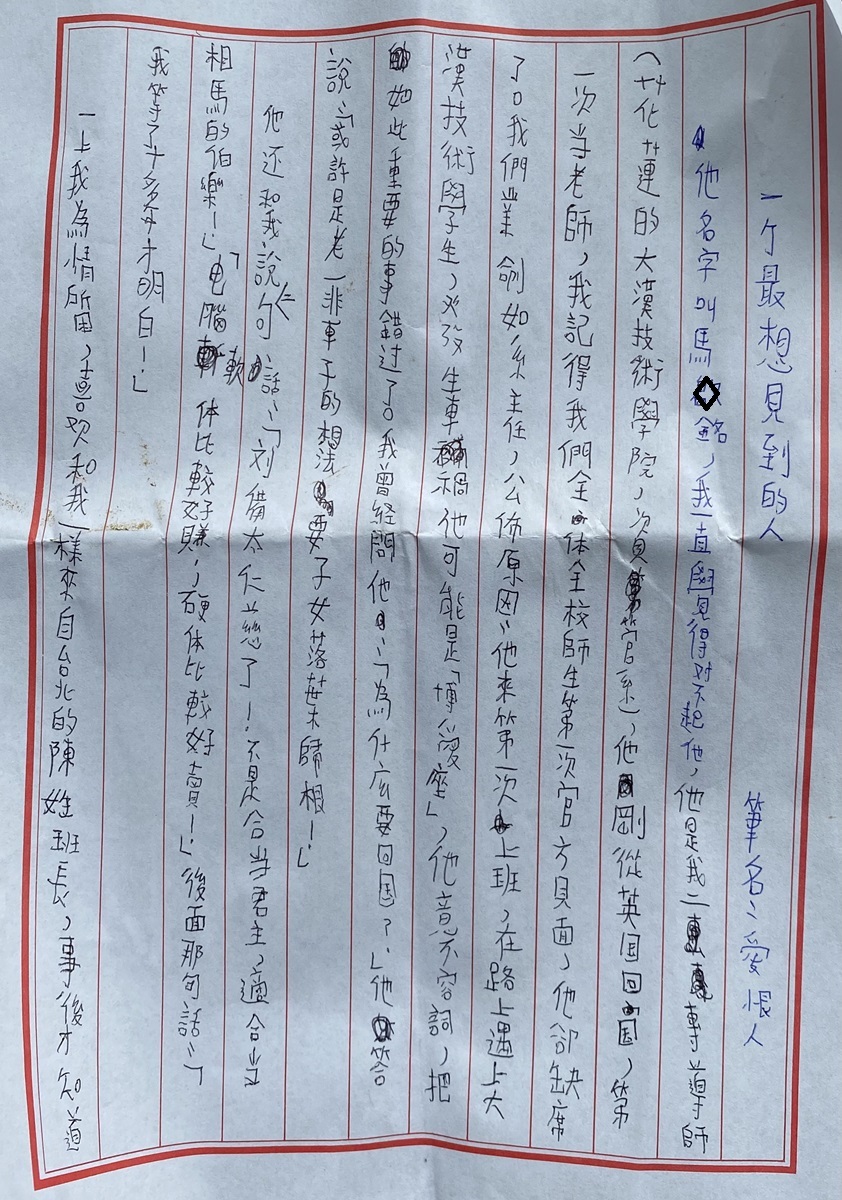 一个最想見到的人　　筆名:愛恨人
他名字叫馬銘,我一直覺得对不起他,他是我二專導師
(花蓮的大漢技術學院,資管系),他剛從英国回国,第
一次当老師,我記得我們全体全校師生第一次官方見面,他卻缺席
了。我們業創如系主任,公佈原因:他來第一次上班,在路上遇上大
漢技術學生,发生車禍他可能是「博愛座」,他意不容詞,把
如此重要的事錯过了。我曾経問他:「為什么要回国?」他答
說:「或許是老一輩子的想法要子女落葉歸根!」
他还和我說一句話:「刘備太仁慈了!不是合当君主,適合当
相馬的伯樂!」「电腦軟体比較好賺,硬体比較好賣!」後面那句話:「
我等了十多年才明白!」
一上我為情所困,喜欢和我一樣來自台北的陳姓班長,事後才知道